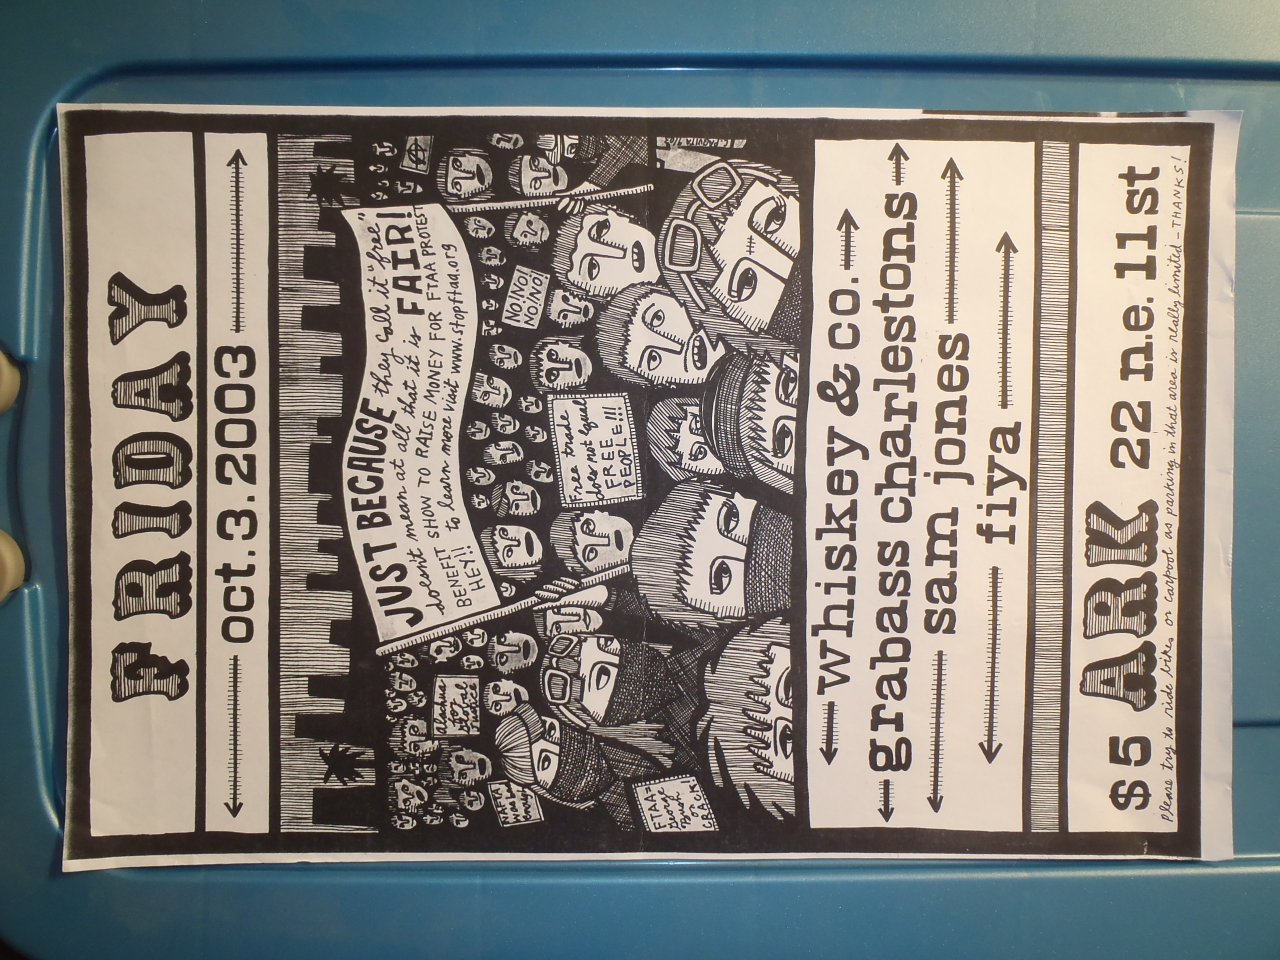 FRIDAY
oct.3.2003
JUST BECAUSE they call it "free"
doesn't mean at all that it is FAIR!
BENEFIT SHOW TO RAISE MONEY FOR FTAA PROTEST
HEY!! to learn more visit www.stopftaa.org
NO!NO!
NO!NO!
Free trade
does not equal
FREE
PEOPLE!!!
alachua
for
social
justice
FTAA=
George
Bush
on
CRACK!
whiskey & co.
grabass charlestons
sam jones
fiya
$5 ARK 22 n.e. 11st
Please try to ride bikes or carpool as parking in that area is really limited - THANKS!